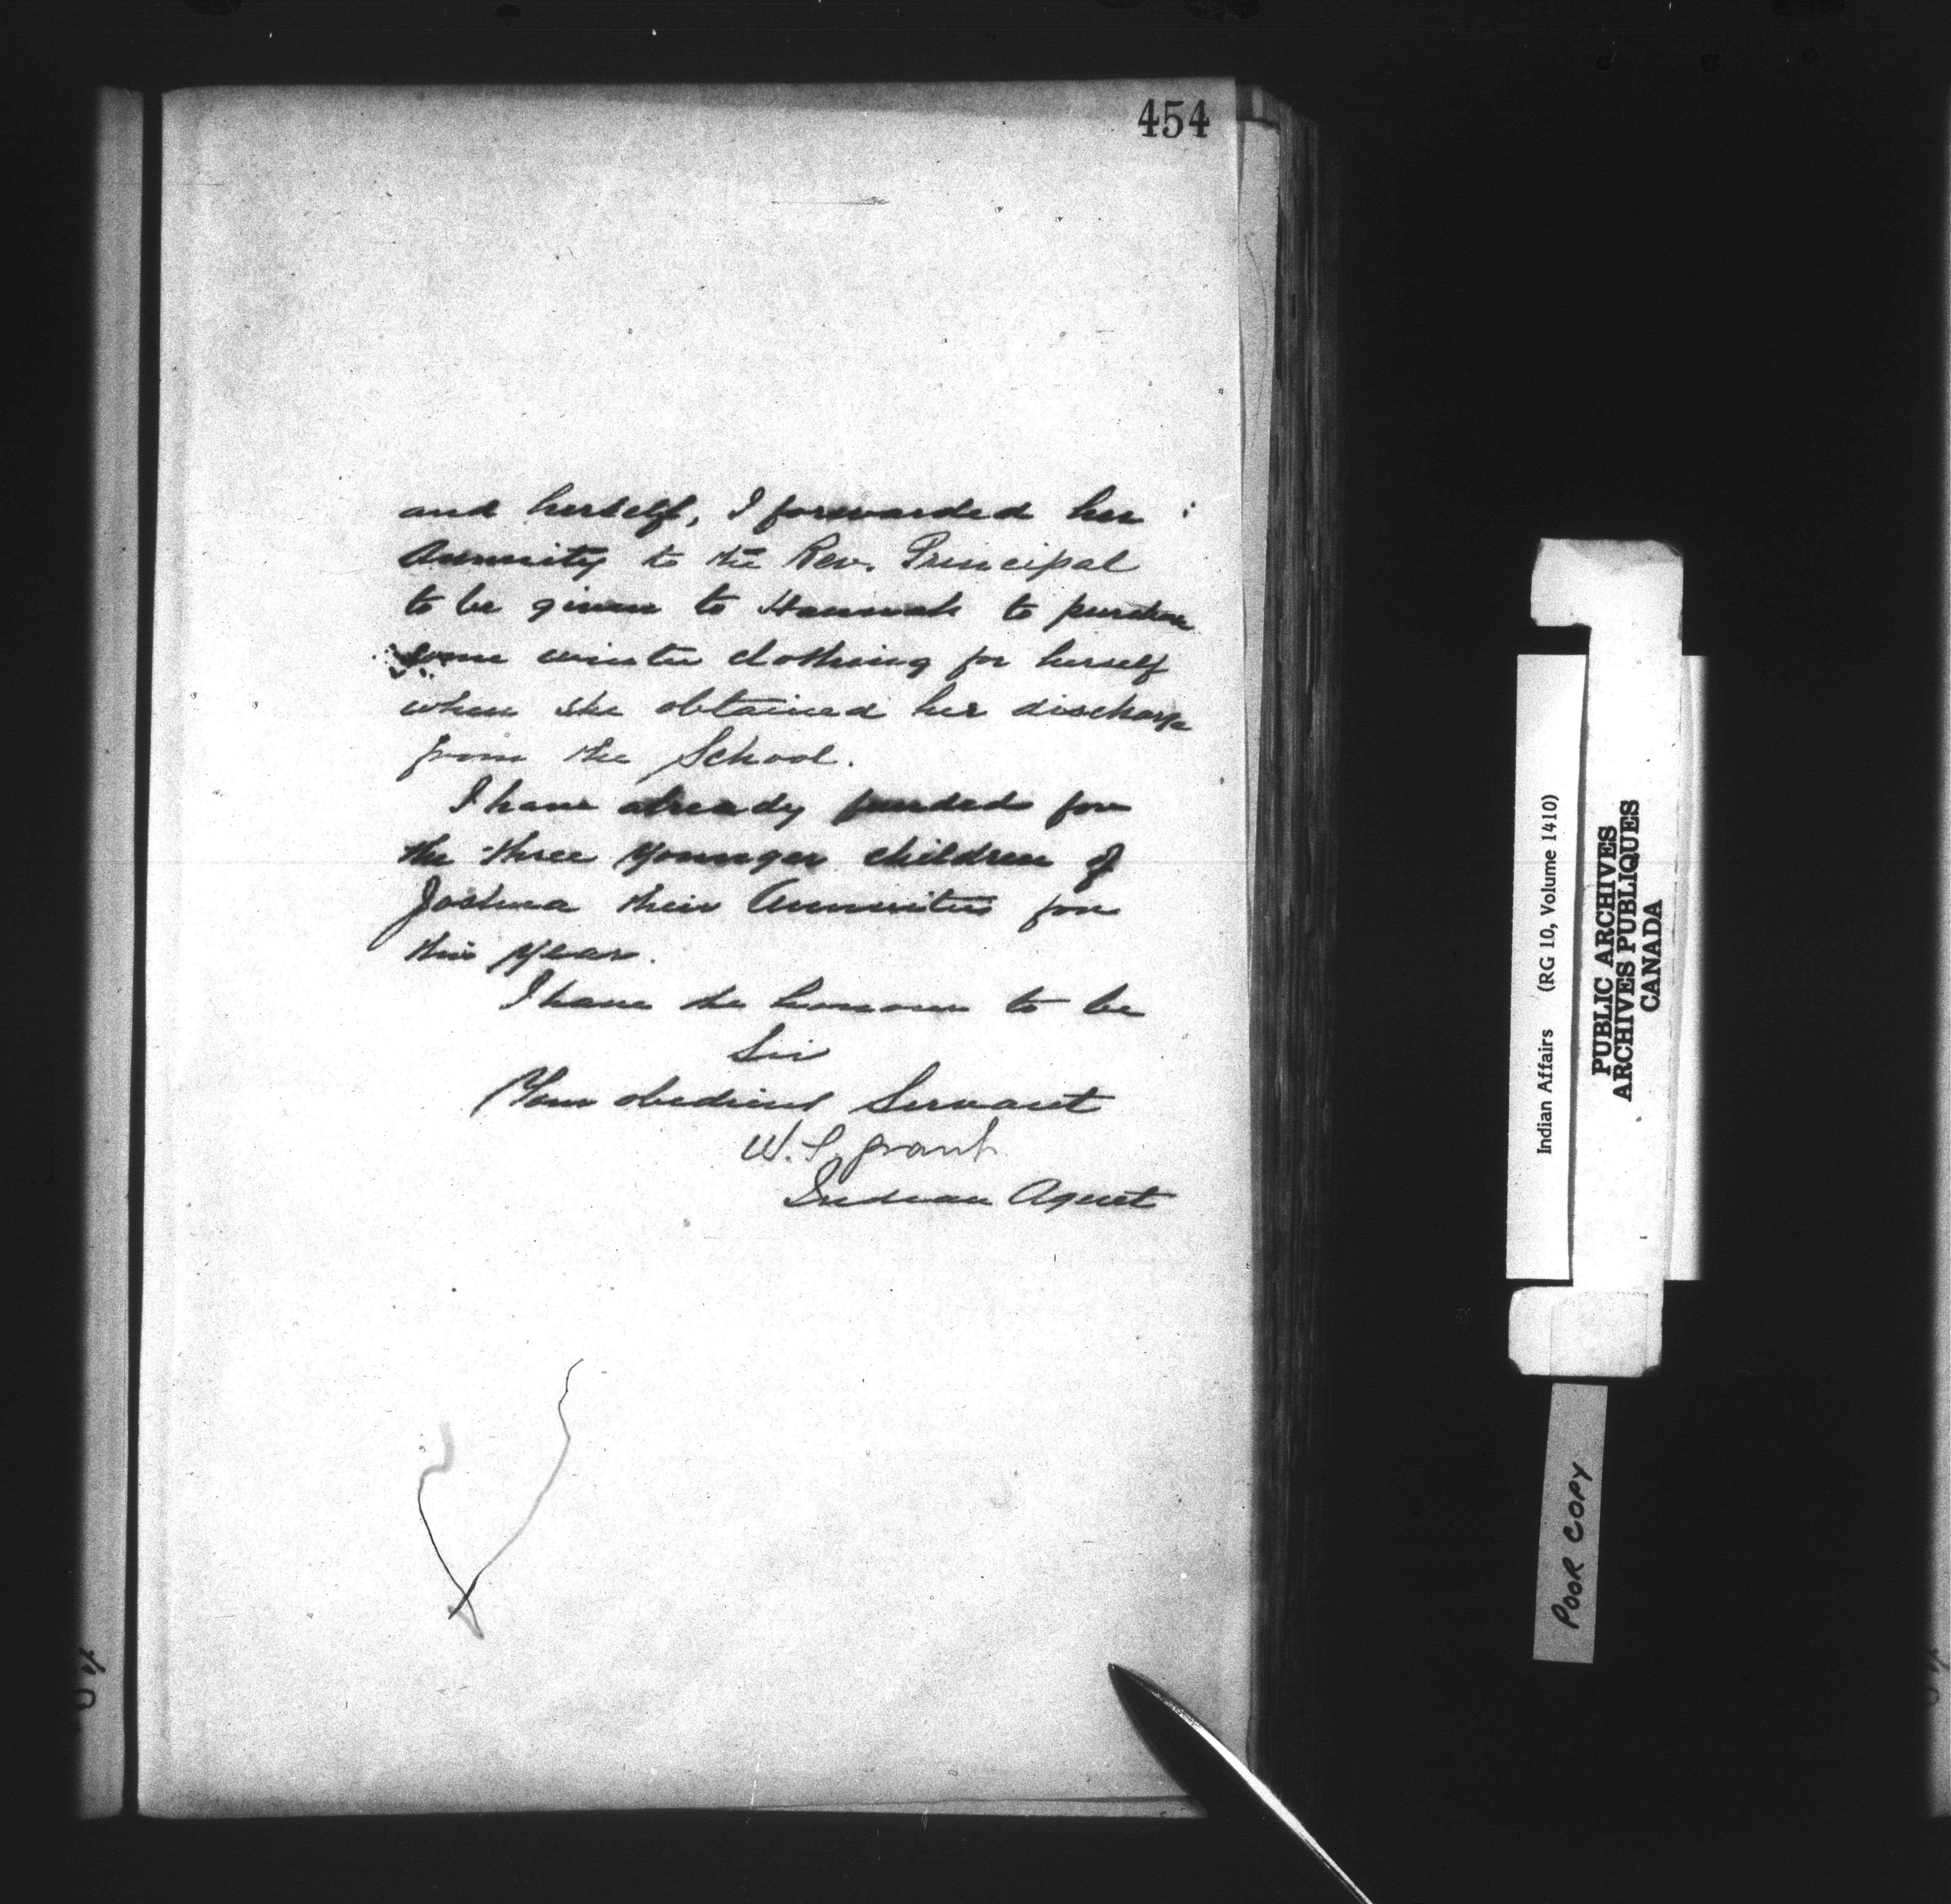 454
and herself, I forwarded her
Annuity to the Rev. Principal
to be given to Hannah to purchase
some winter clothing for herself
when she obtained her discharge
from the School.
I have already funded for
the three younger children of
Joshua their Annuities for
this year.
I have the honour to be
Sir
Your obedient Servant
W. S. Grant
Indian Agent
Indian Affairs (RG 10, Volume 1410)
PUBLIC ARCHIVES
ARCHIVES PUBLIQUES
CANADA
POOR COPY